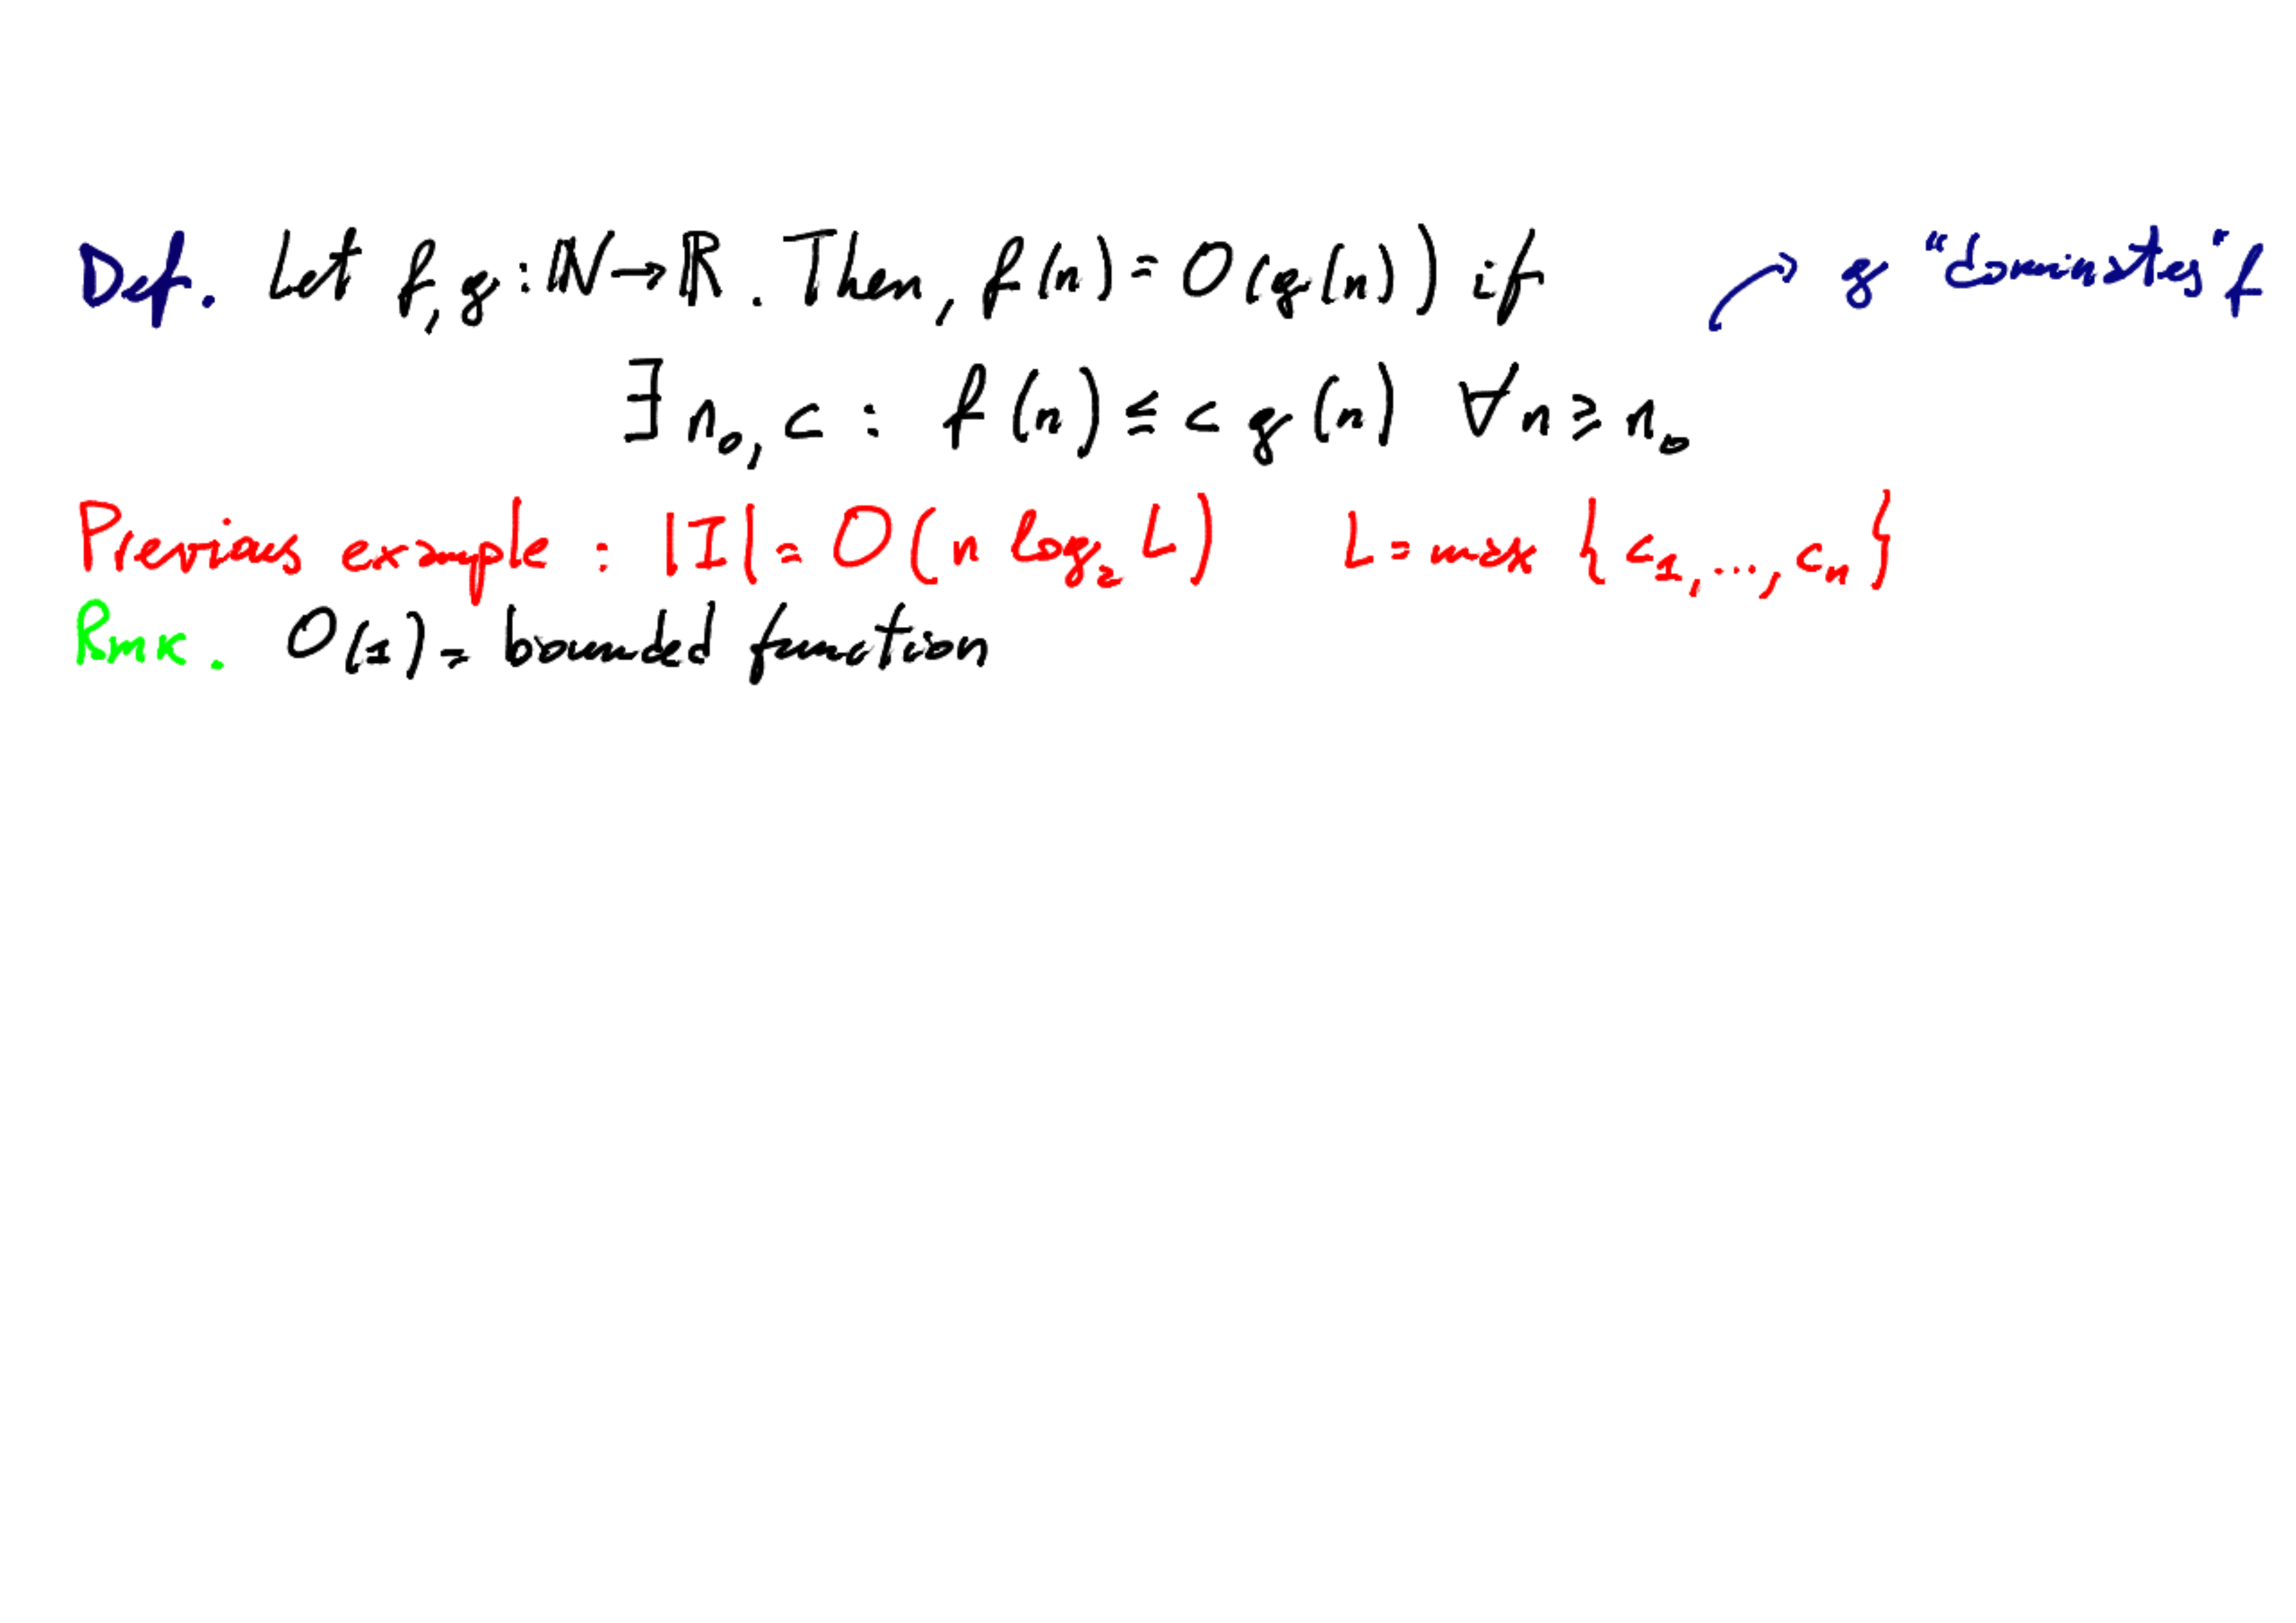 Def. Let f, g : ℕ → ℝ. Then, f(n) = O(g(n)) if ↗ g "dominates" f
∃ n₀, c : f(n) ≤ c g(n) ∀ n ≥ n₀
Previous example : |I| = O(n log₂ L) L = max {c₁, ..., cₙ}
Rmk. O(1) = bounded function